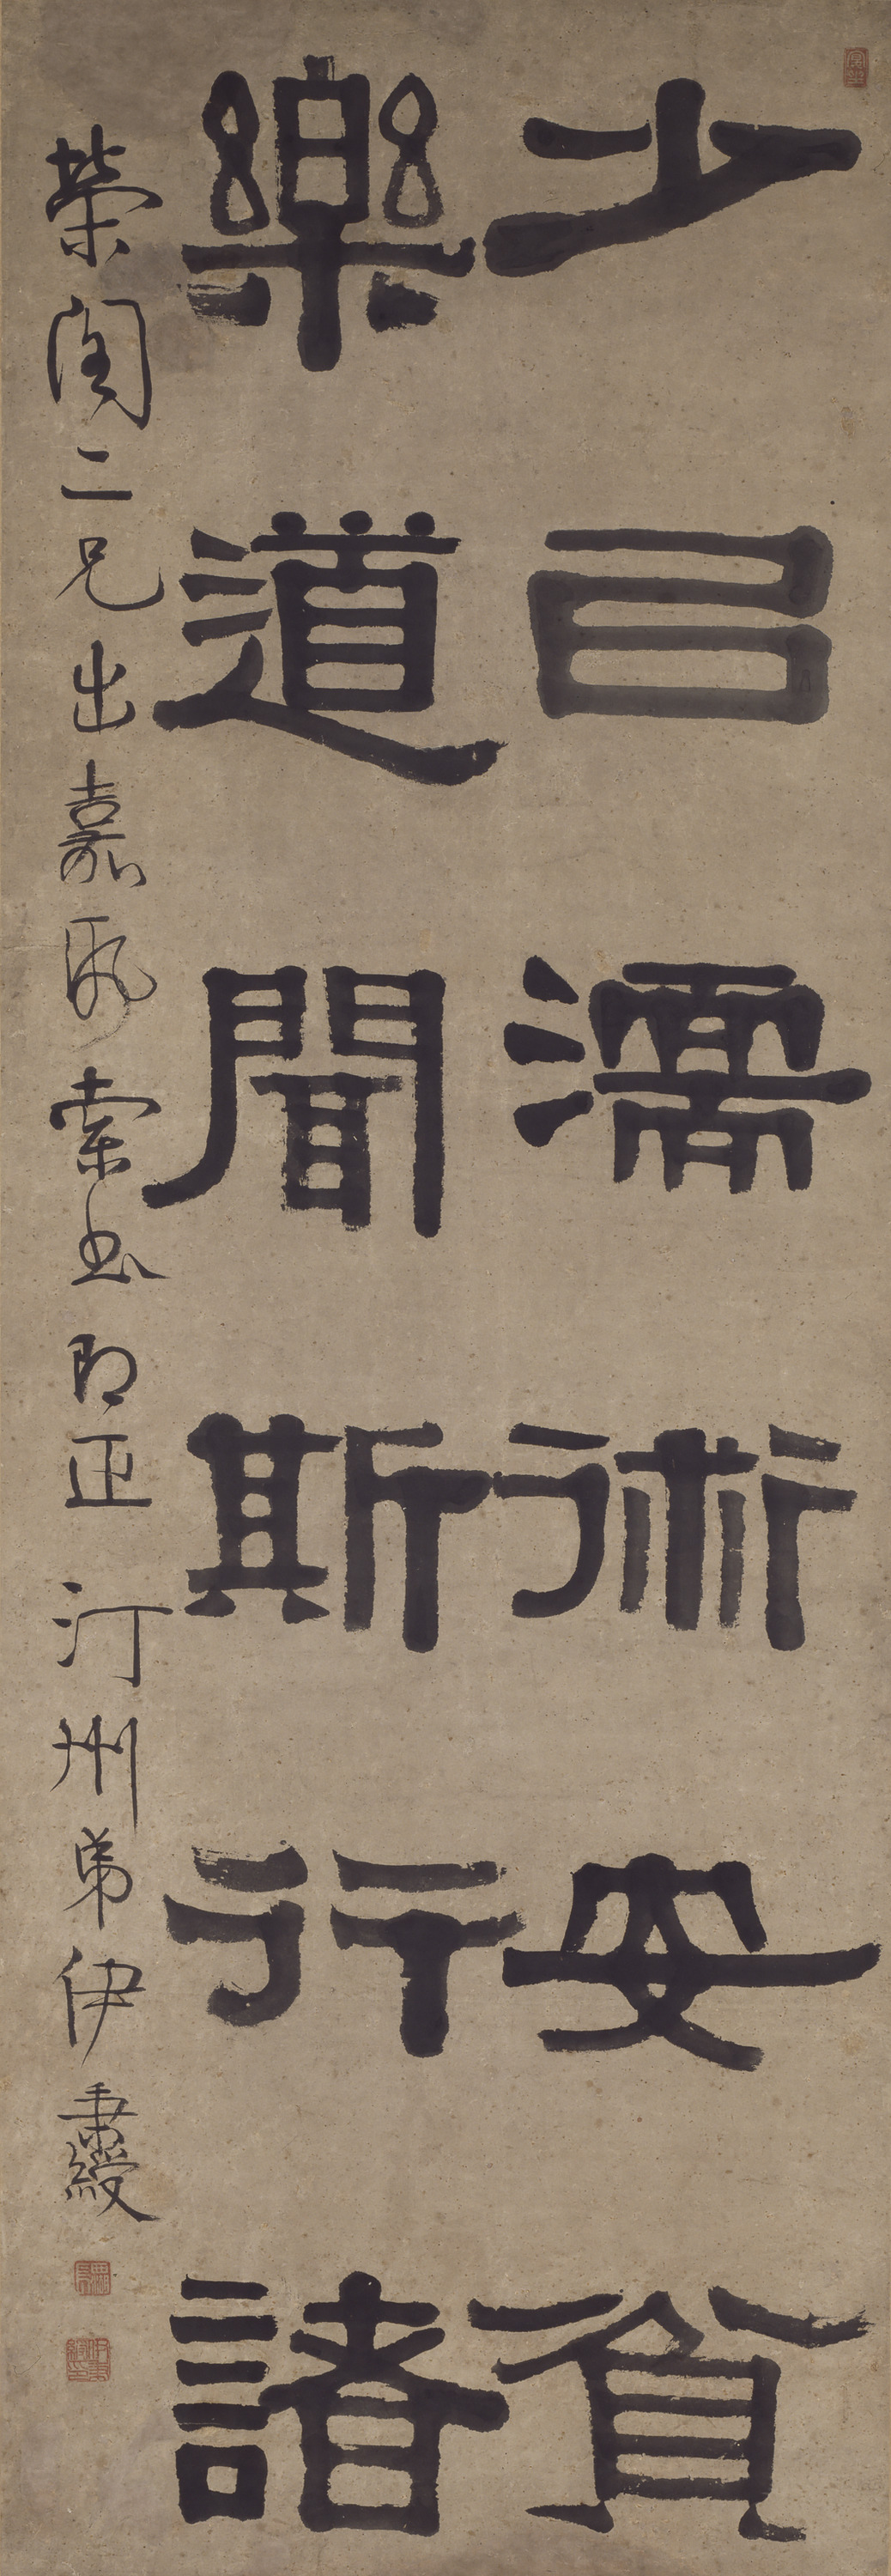 少㠯濡術安貧
樂道聞斯行諸
榮二兄出嘉索書即正汀州弟伊秉綬
伊秉綬印